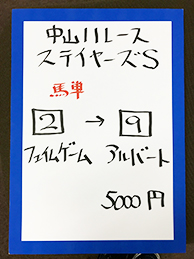 中山11レース
ステイヤーズS
馬単
2 → 9
フェイムゲーム アルバート
5000円